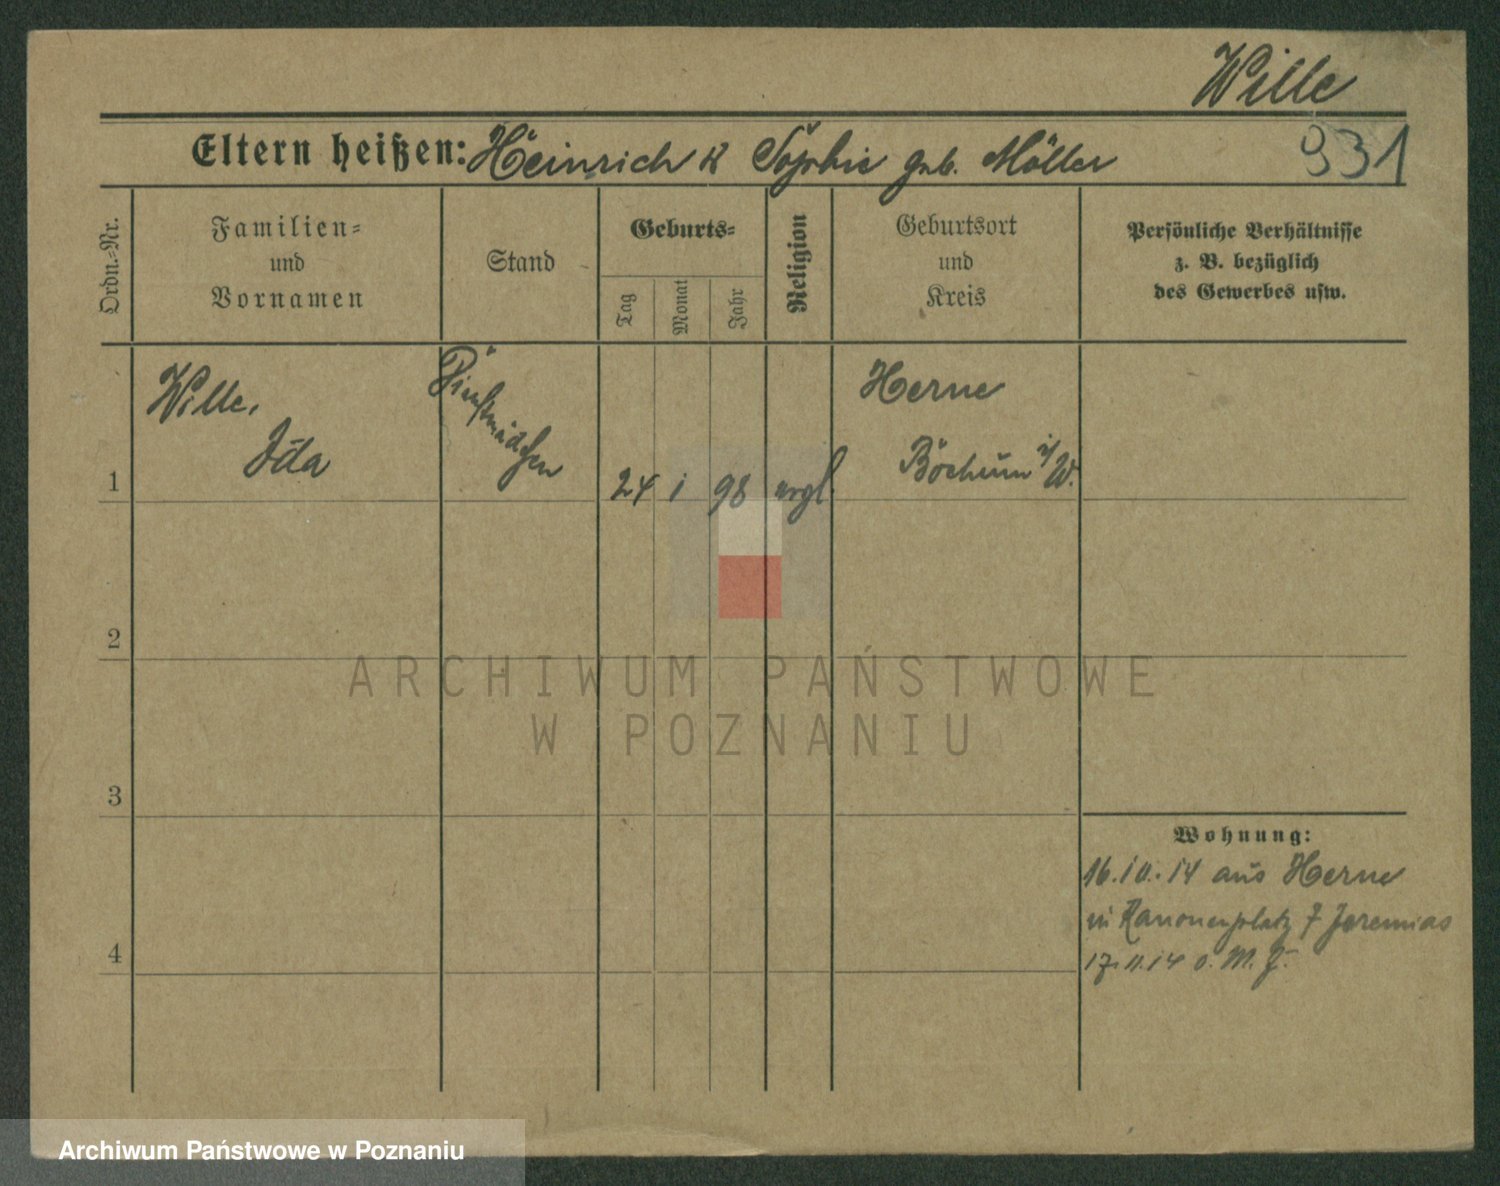 Wille
Eltern heißen: Heinrich & Sophie geb. Möller
931
Ordn.=Nr.
Familien=
und
Vornamen
Stand
Geburts=
Tag
Monat
Jahr
Religion
Geburtsort
und
Kreis
Persönliche Verhältnisse
z. B. bezüglich
des Gewerbes usw.
1
Wille,
Ida
Dienstmädchen
24 1 98 evgl.
Herne
Bochum i/W.
2
3
4
Wohnung:
16.10.14 aus Herne
in Kanonenplatz 7 Jeremias
17.11.14 o. M. F.
ARCHIWUM PAŃSTWOWE
W POZNANIU
Archiwum Państwowe w Poznaniu